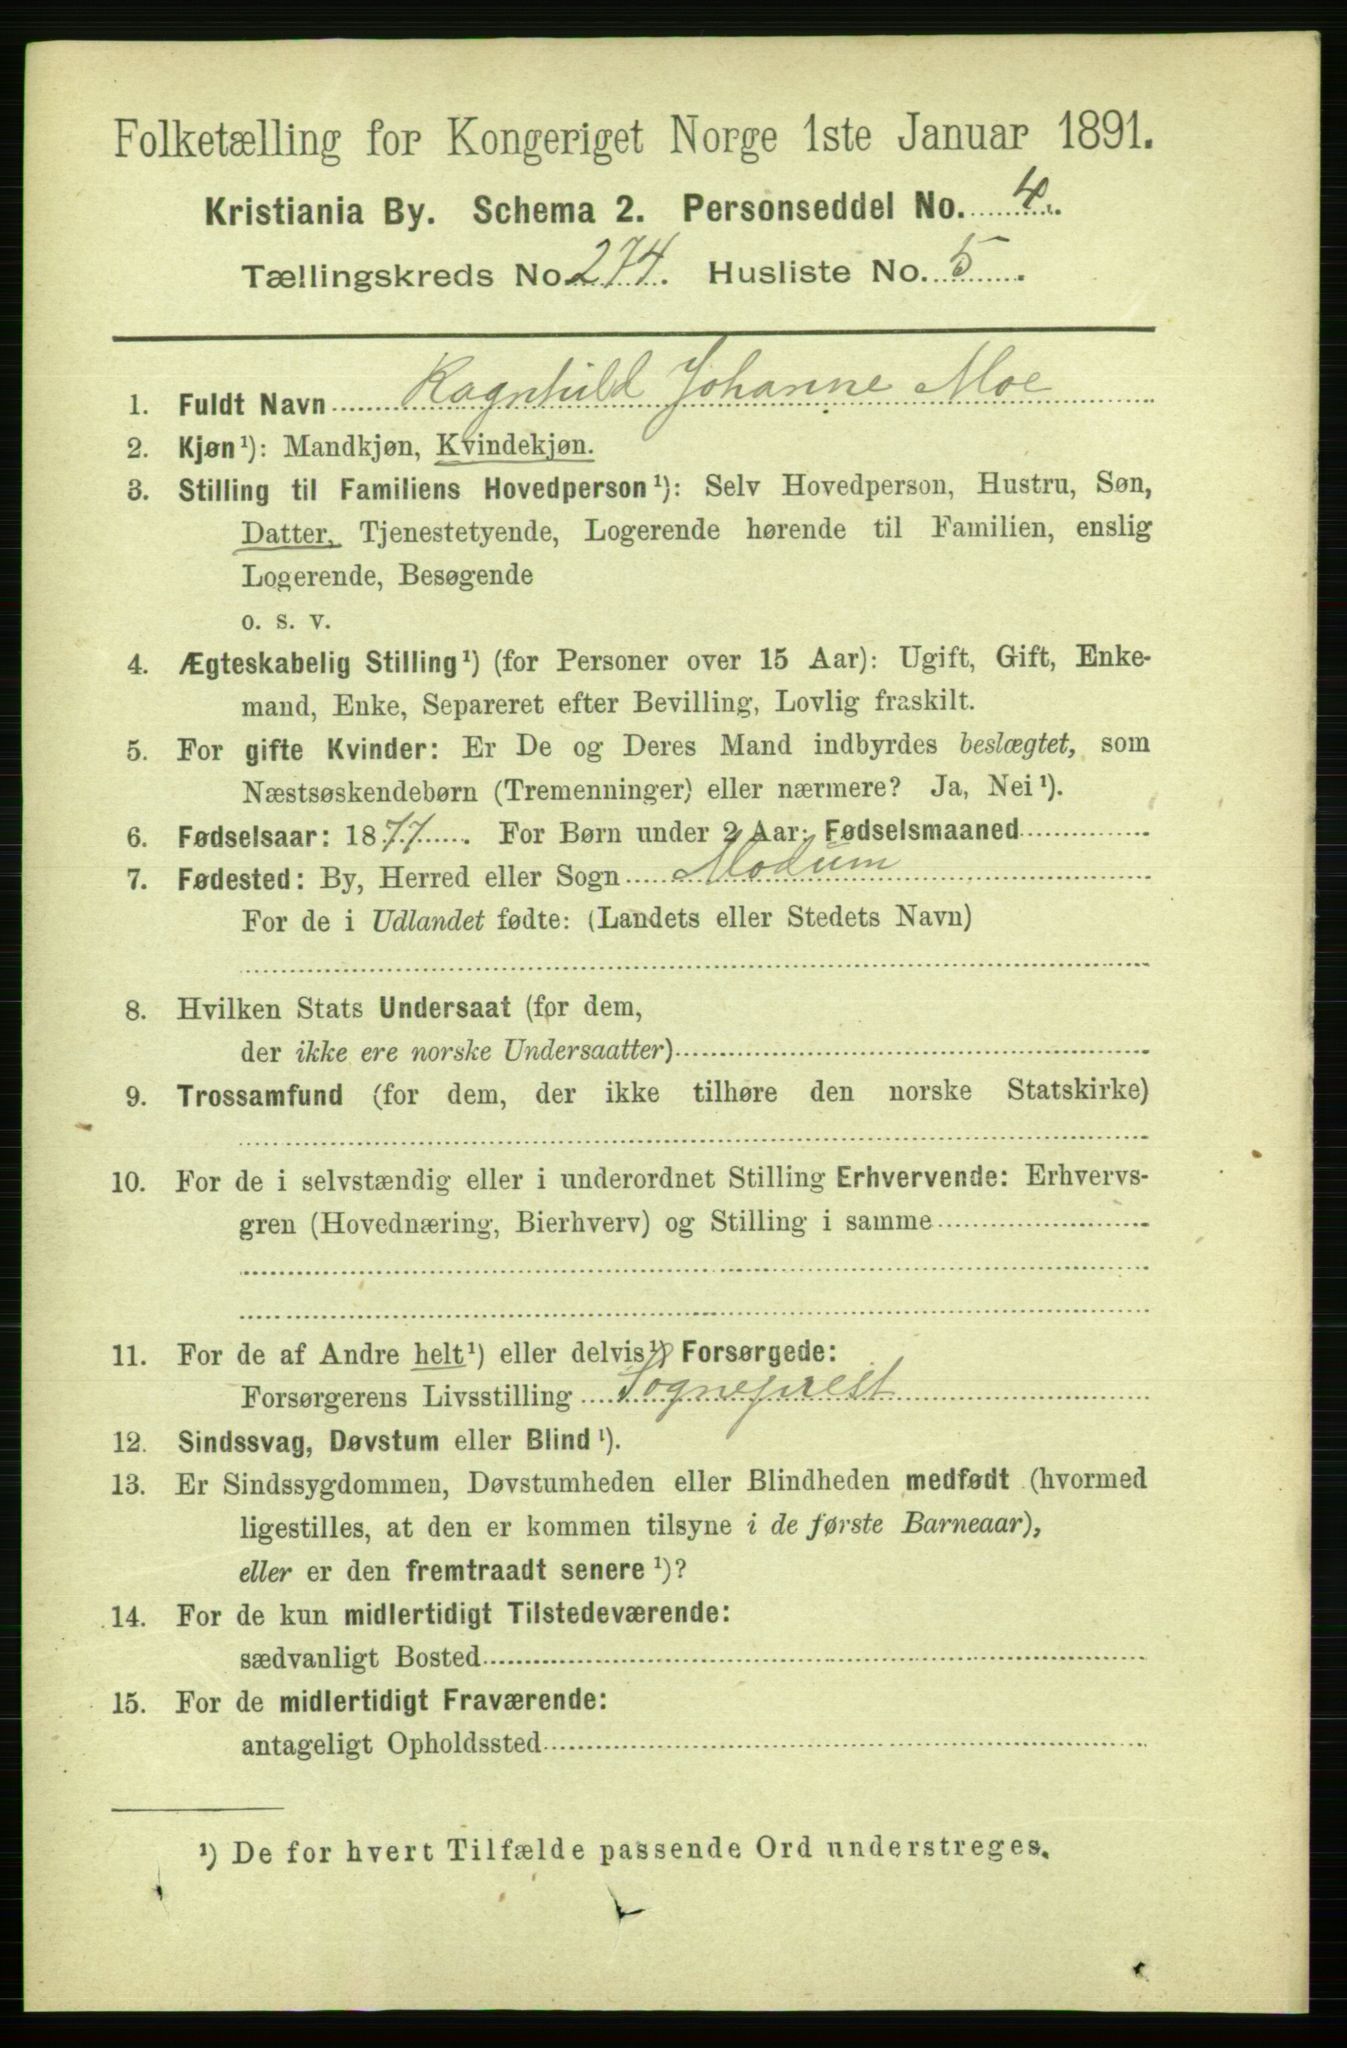 Folketælling for Kongeriget Norge 1ste Januar 1891.
Kristiania By. Schema 2. Personseddel No. 4.
Tællingskreds No. 274. Husliste No. 5.
1. Fuldt Navn Ragnhild Johanne Moe
2. Kjøn¹): Mandkjøn, Kvindekjøn.
3. Stilling til Familiens Hovedperson¹): Selv Hovedperson, Hustru, Søn,
Datter, Tjenestetyende, Logerende hørende til Familien, enslig
Logerende, Besøgende
o. s. v.
4. Ægteskabelig Stilling¹) (for Personer over 15 Aar): Ugift, Gift, Enke-
mand, Enke, Separeret efter Bevilling, Lovlig fraskilt.
5. For gifte Kvinder: Er De og Deres Mand indbyrdes beslægtet, som
Næstsøskendebørn (Tremenninger) eller nærmere? Ja, Nei¹).
6. Fødselsaar: 1877. For Børn under 2 Aar: Fødselsmaaned
7. Fødested: By, Herred eller Sogn Modum
For de i Udlandet fødte: (Landets eller Stedets Navn)
8. Hvilken Stats Undersaat (for dem,
der ikke ere norske Undersaatter)
9. Trossamfund (for dem, der ikke tilhøre den norske Statskirke)
10. For de i selvstændig eller i underordnet Stilling Erhvervende: Erhvervs-
gren (Hovednæring, Bierhverv) og Stilling i samme
11. For de af Andre helt¹) eller delvis¹) Forsørgede:
Forsørgerens Livsstilling Sogneprest
12. Sindssvag, Døvstum eller Blind¹).
13. Er Sindssygdommen, Døvstumheden eller Blindheden medfødt (hvormed
ligestilles, at den er kommen tilsyne i de første Barneaar),
eller er den fremtraadt senere¹)?
14. For de kun midlertidigt Tilstedeværende:
sædvanligt Bosted
15. For de midlertidigt Fraværende:
antageligt Opholdssted
¹) De for hvert Tilfælde passende Ord understreges.